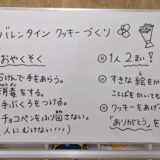 バレンタイン クッキーづくり
おやくそく
石けんで手をあらう。
消毒をする。
手ぶくろをつける。
チョコペンをふり回さない。
人にむけない!!!
○1人2まい!
○すきな絵をか
ことばをかいても
○クッキーをあげ
「ありがとう」を